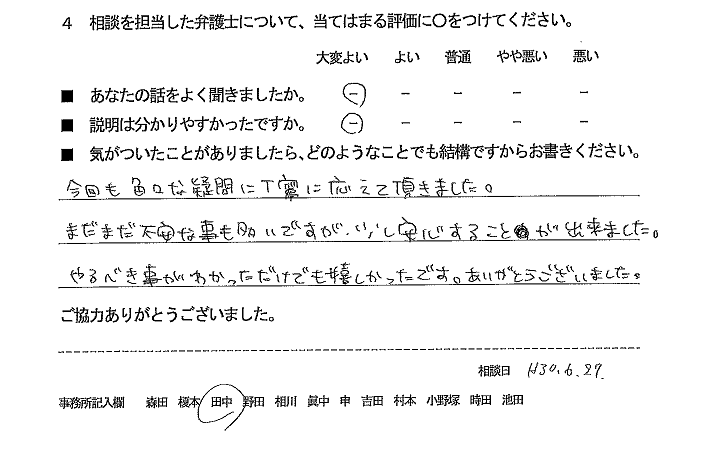 4 相談を担当した弁護士について、当てはまる評価に〇をつけてください。
大変よい よい 普通 やや悪い 悪い
■ あなたの話をよく聞きましたか。 － － － － －
■ 説明は分かりやすかったですか。 － － － － －
■ 気がついたことがありましたら、どのようなことでも結構ですからお書きください。
今回も色々な疑問に丁寧に応えて頂きました。
まだまだ不安な事も多いですが、少し安心することが出来ました。
やるべき事がわかっただけでも嬉しかったです。ありがとうございました。
ご協力ありがとうございました。
相談日 H30.6.27.
事務所記入欄 森田 榎本 田中 野田 相川 眞中 申 吉田 村本 小野塚 時田 池田